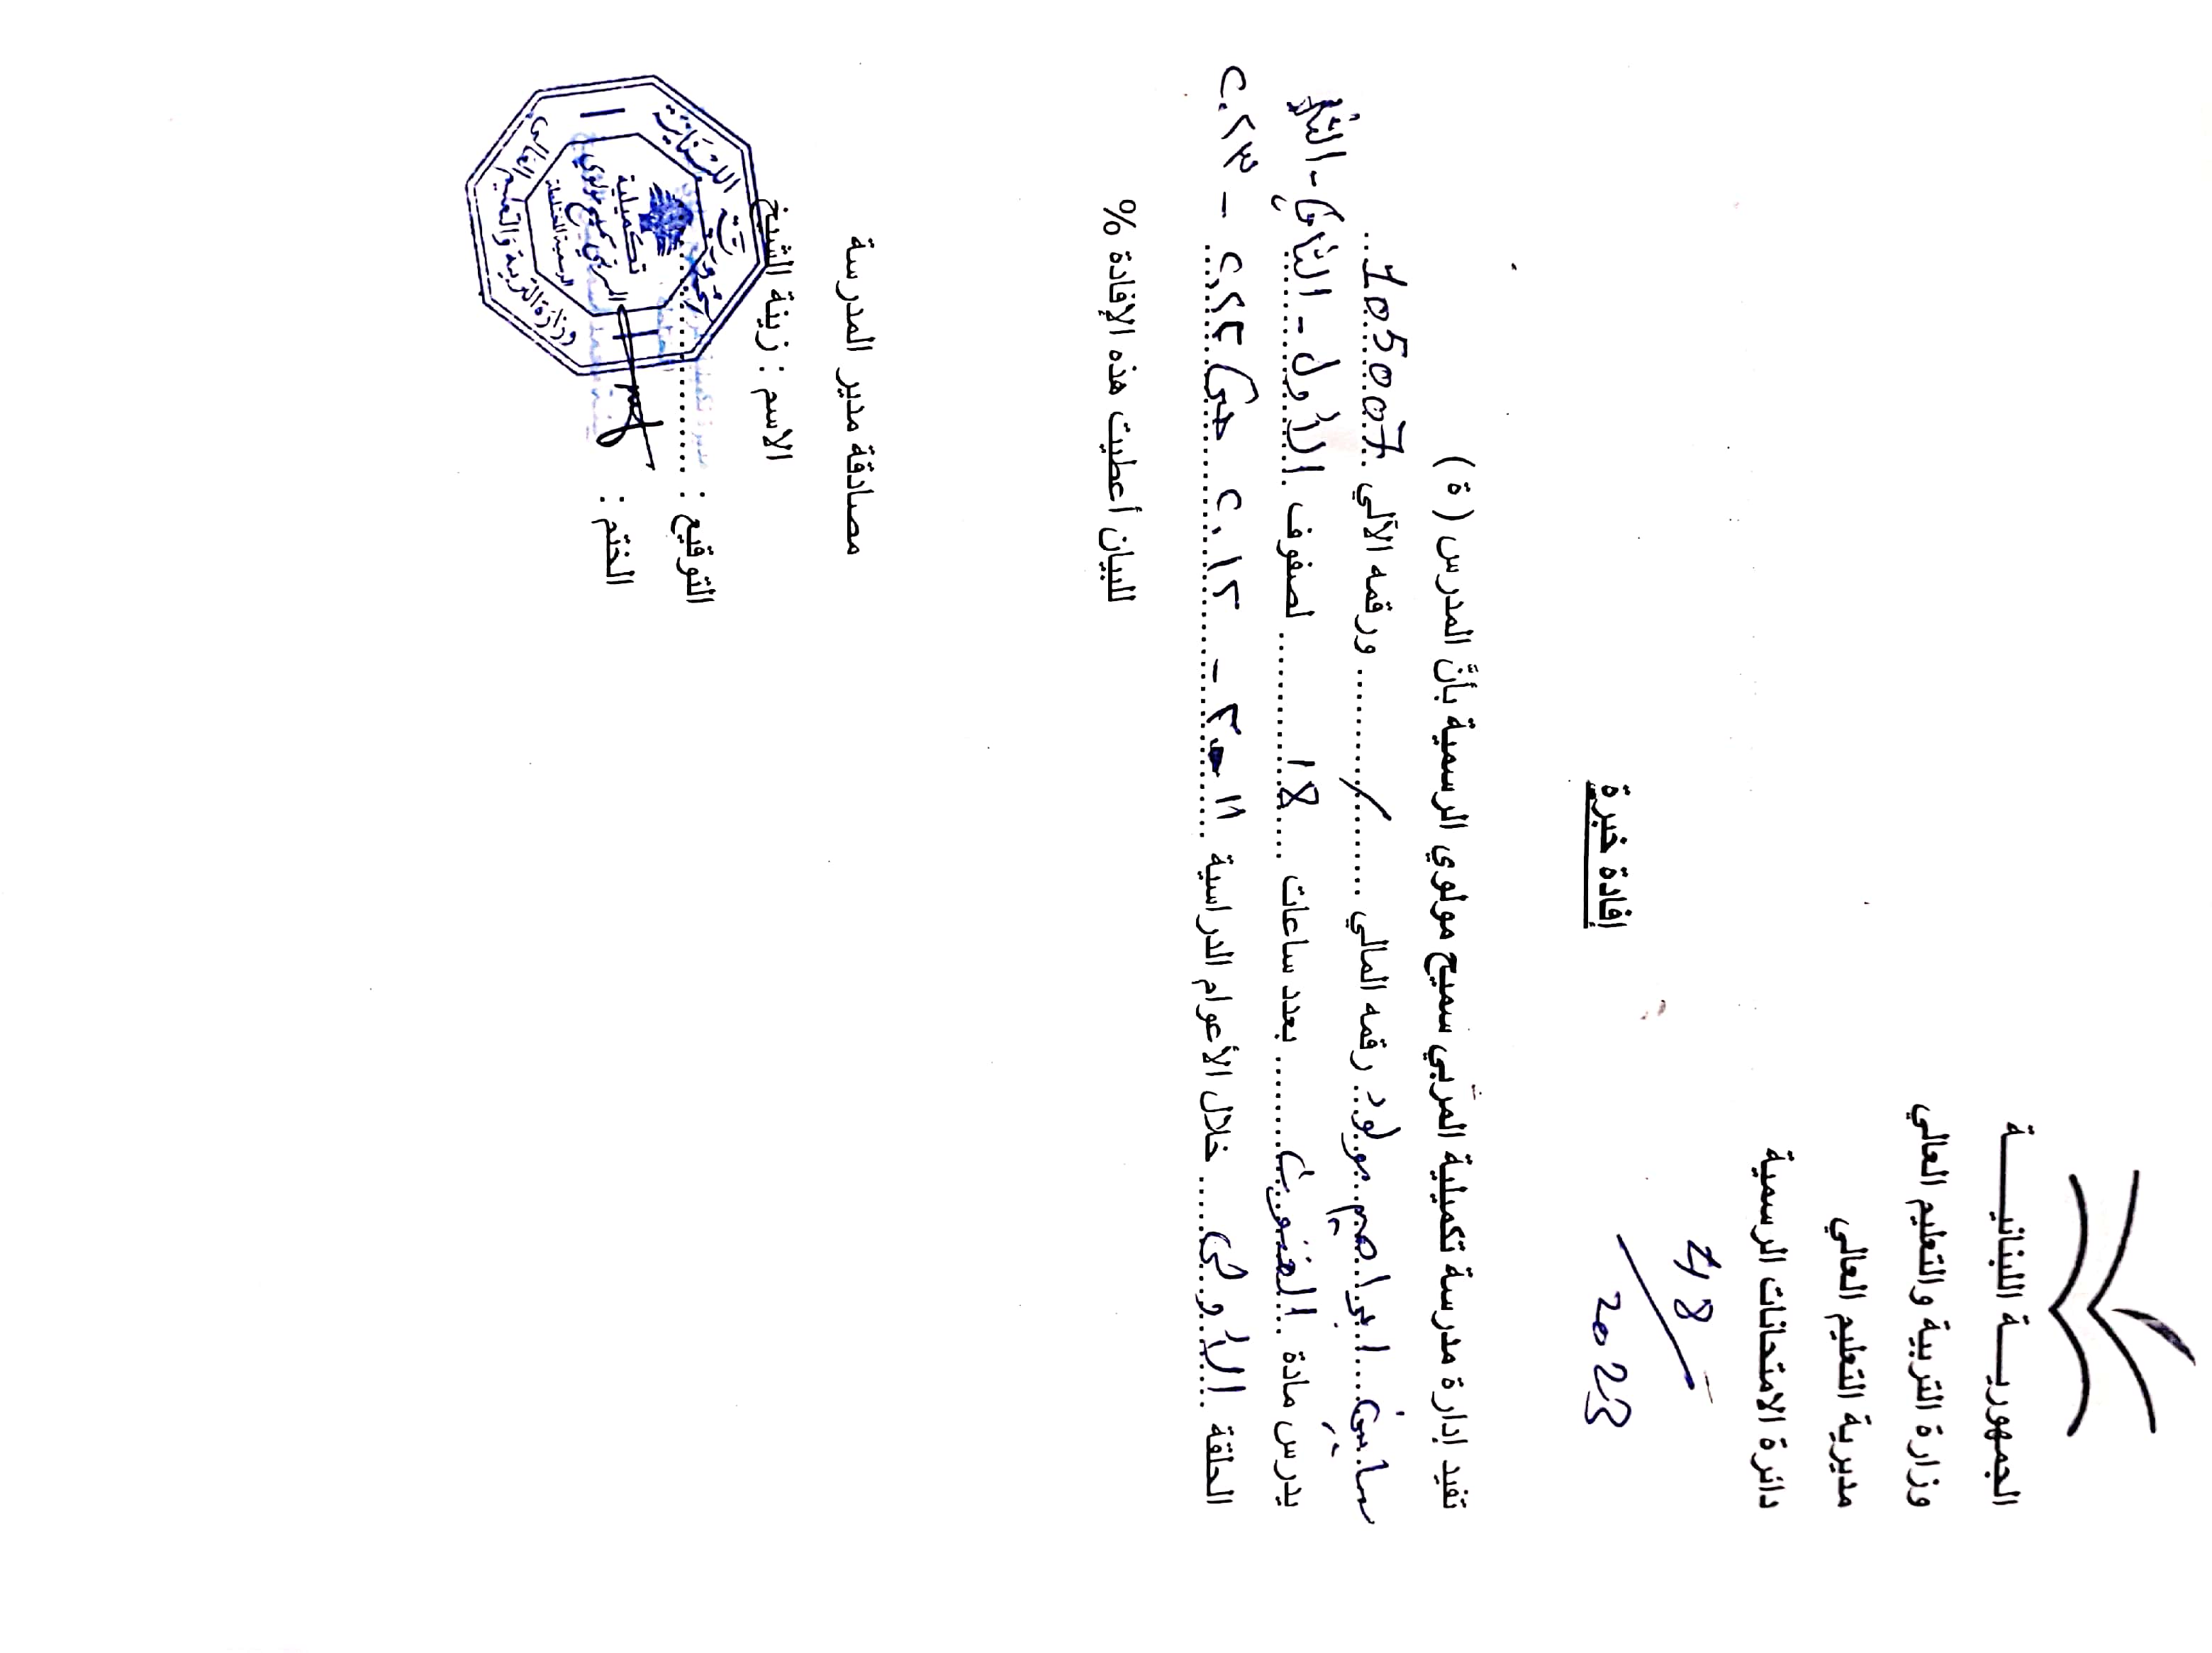 الجمهوريــــة اللبنانيــــــة
وزارة التربية والتعليم العالي
مديرية التعليم العالي
دائرة الامتحانات الرسمية
48
2023
إفادة خبرة
تفيد إدارة مدرسة تكميلية المربّي سميح مولوي الرسمية بأنّ المدرس ( ة )
ابراهيم مولود رقمه المالي / ورقمه الآلي 105007
يدرس مادة الفنون بعدد ساعات 18 لصفوف الأول - الثاني - الثالث
الحلقة الأولى خلال الأعوام الدراسية ٢٠١١ - ٢٠١٢ حتى ٢٠٢٢ - ٢٠٢٣
للبيان أعطيت هذه الإفادة %
مصادقة مدير المدرسة
الاسم : زينة الشيخ
التوقيع :
الختم :
الجمهورية اللبنانية
وزارة التربية والتعليم العالي
تكميلية
المربي سميح مولوي
الرسمية المختلطة